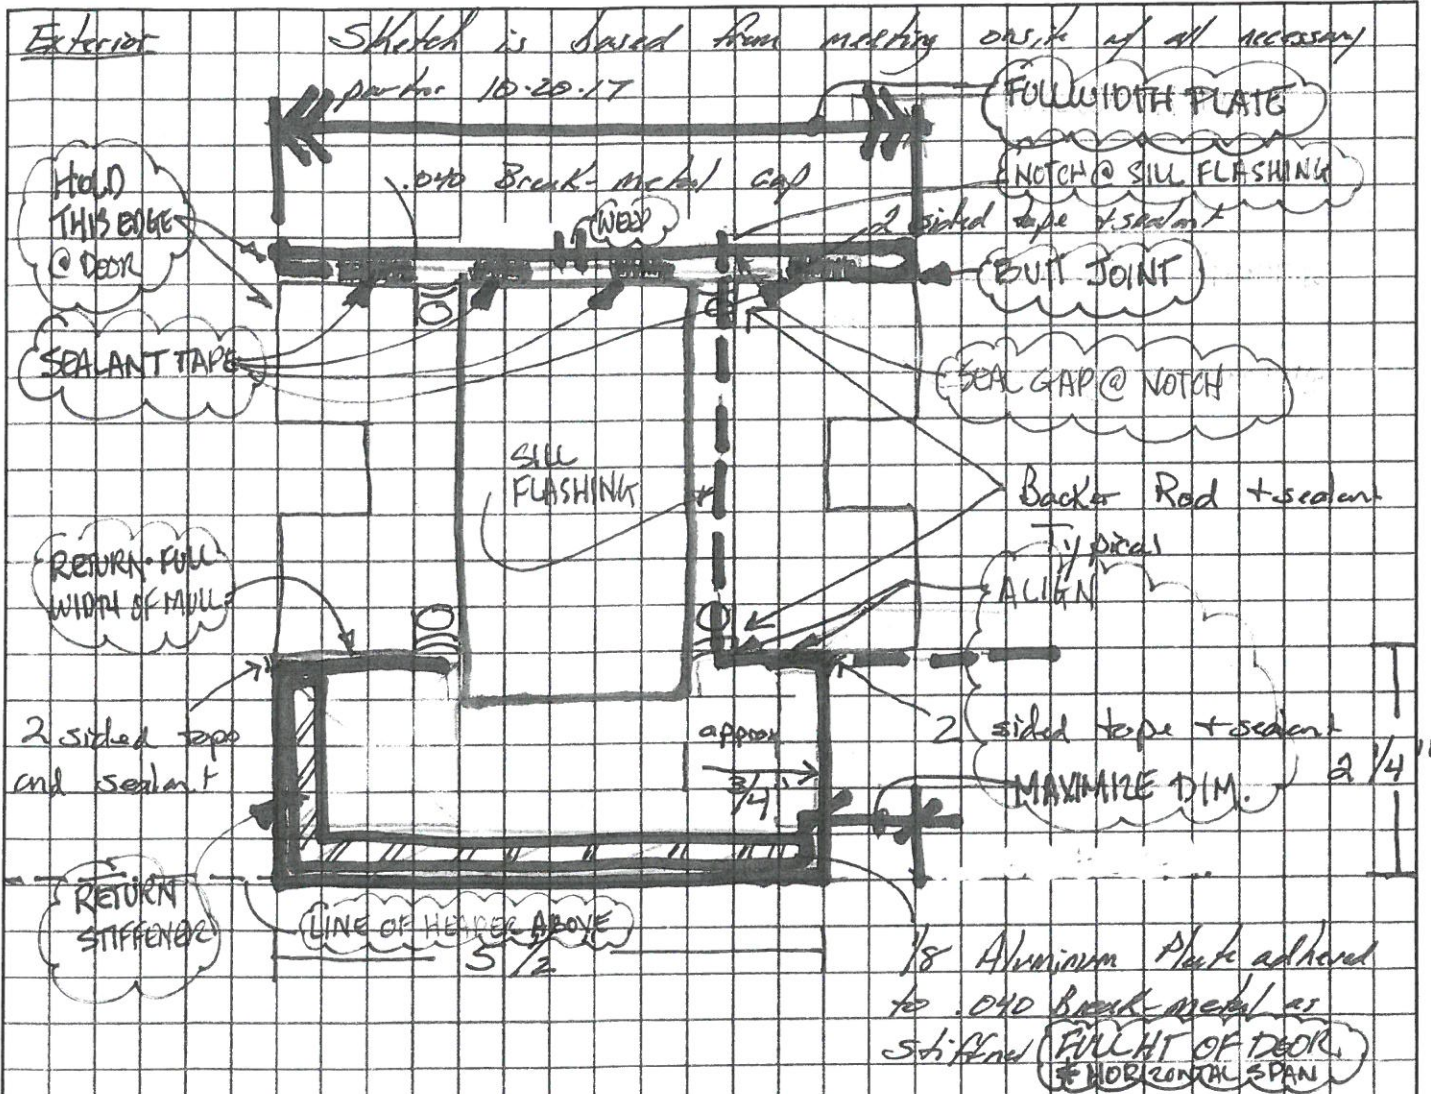 Exterior
Sketch is based from meeting onsite w/ all necessary
10-20-17
FULL WIDTH PLATE
HOLD
THIS EDGE
@ DOOR
.040 Break-metal cap
NOTCH @ SILL FLASHING
WEEP
2 sided tape + sealant
BUTT JOINT
SEALANT TAPE
SEAL GAP @ NOTCH
SILL
FLASHING
Backer Rod + sealant
Typical
RETURN FULL
WIDTH OF MULL
ALIGN
2 sided tape
and sealant
approx
3/4"
2 sided tape + sealant
MAXIMIZE DIM.
2 1/4"
RETURN
STIFFENER
LINE OF HEADER ABOVE
5 1/2
1/8 Aluminum Plate adhered
to .040 Break-metal as
FULL HT OF DOOR
HORIZONTAL SPAN